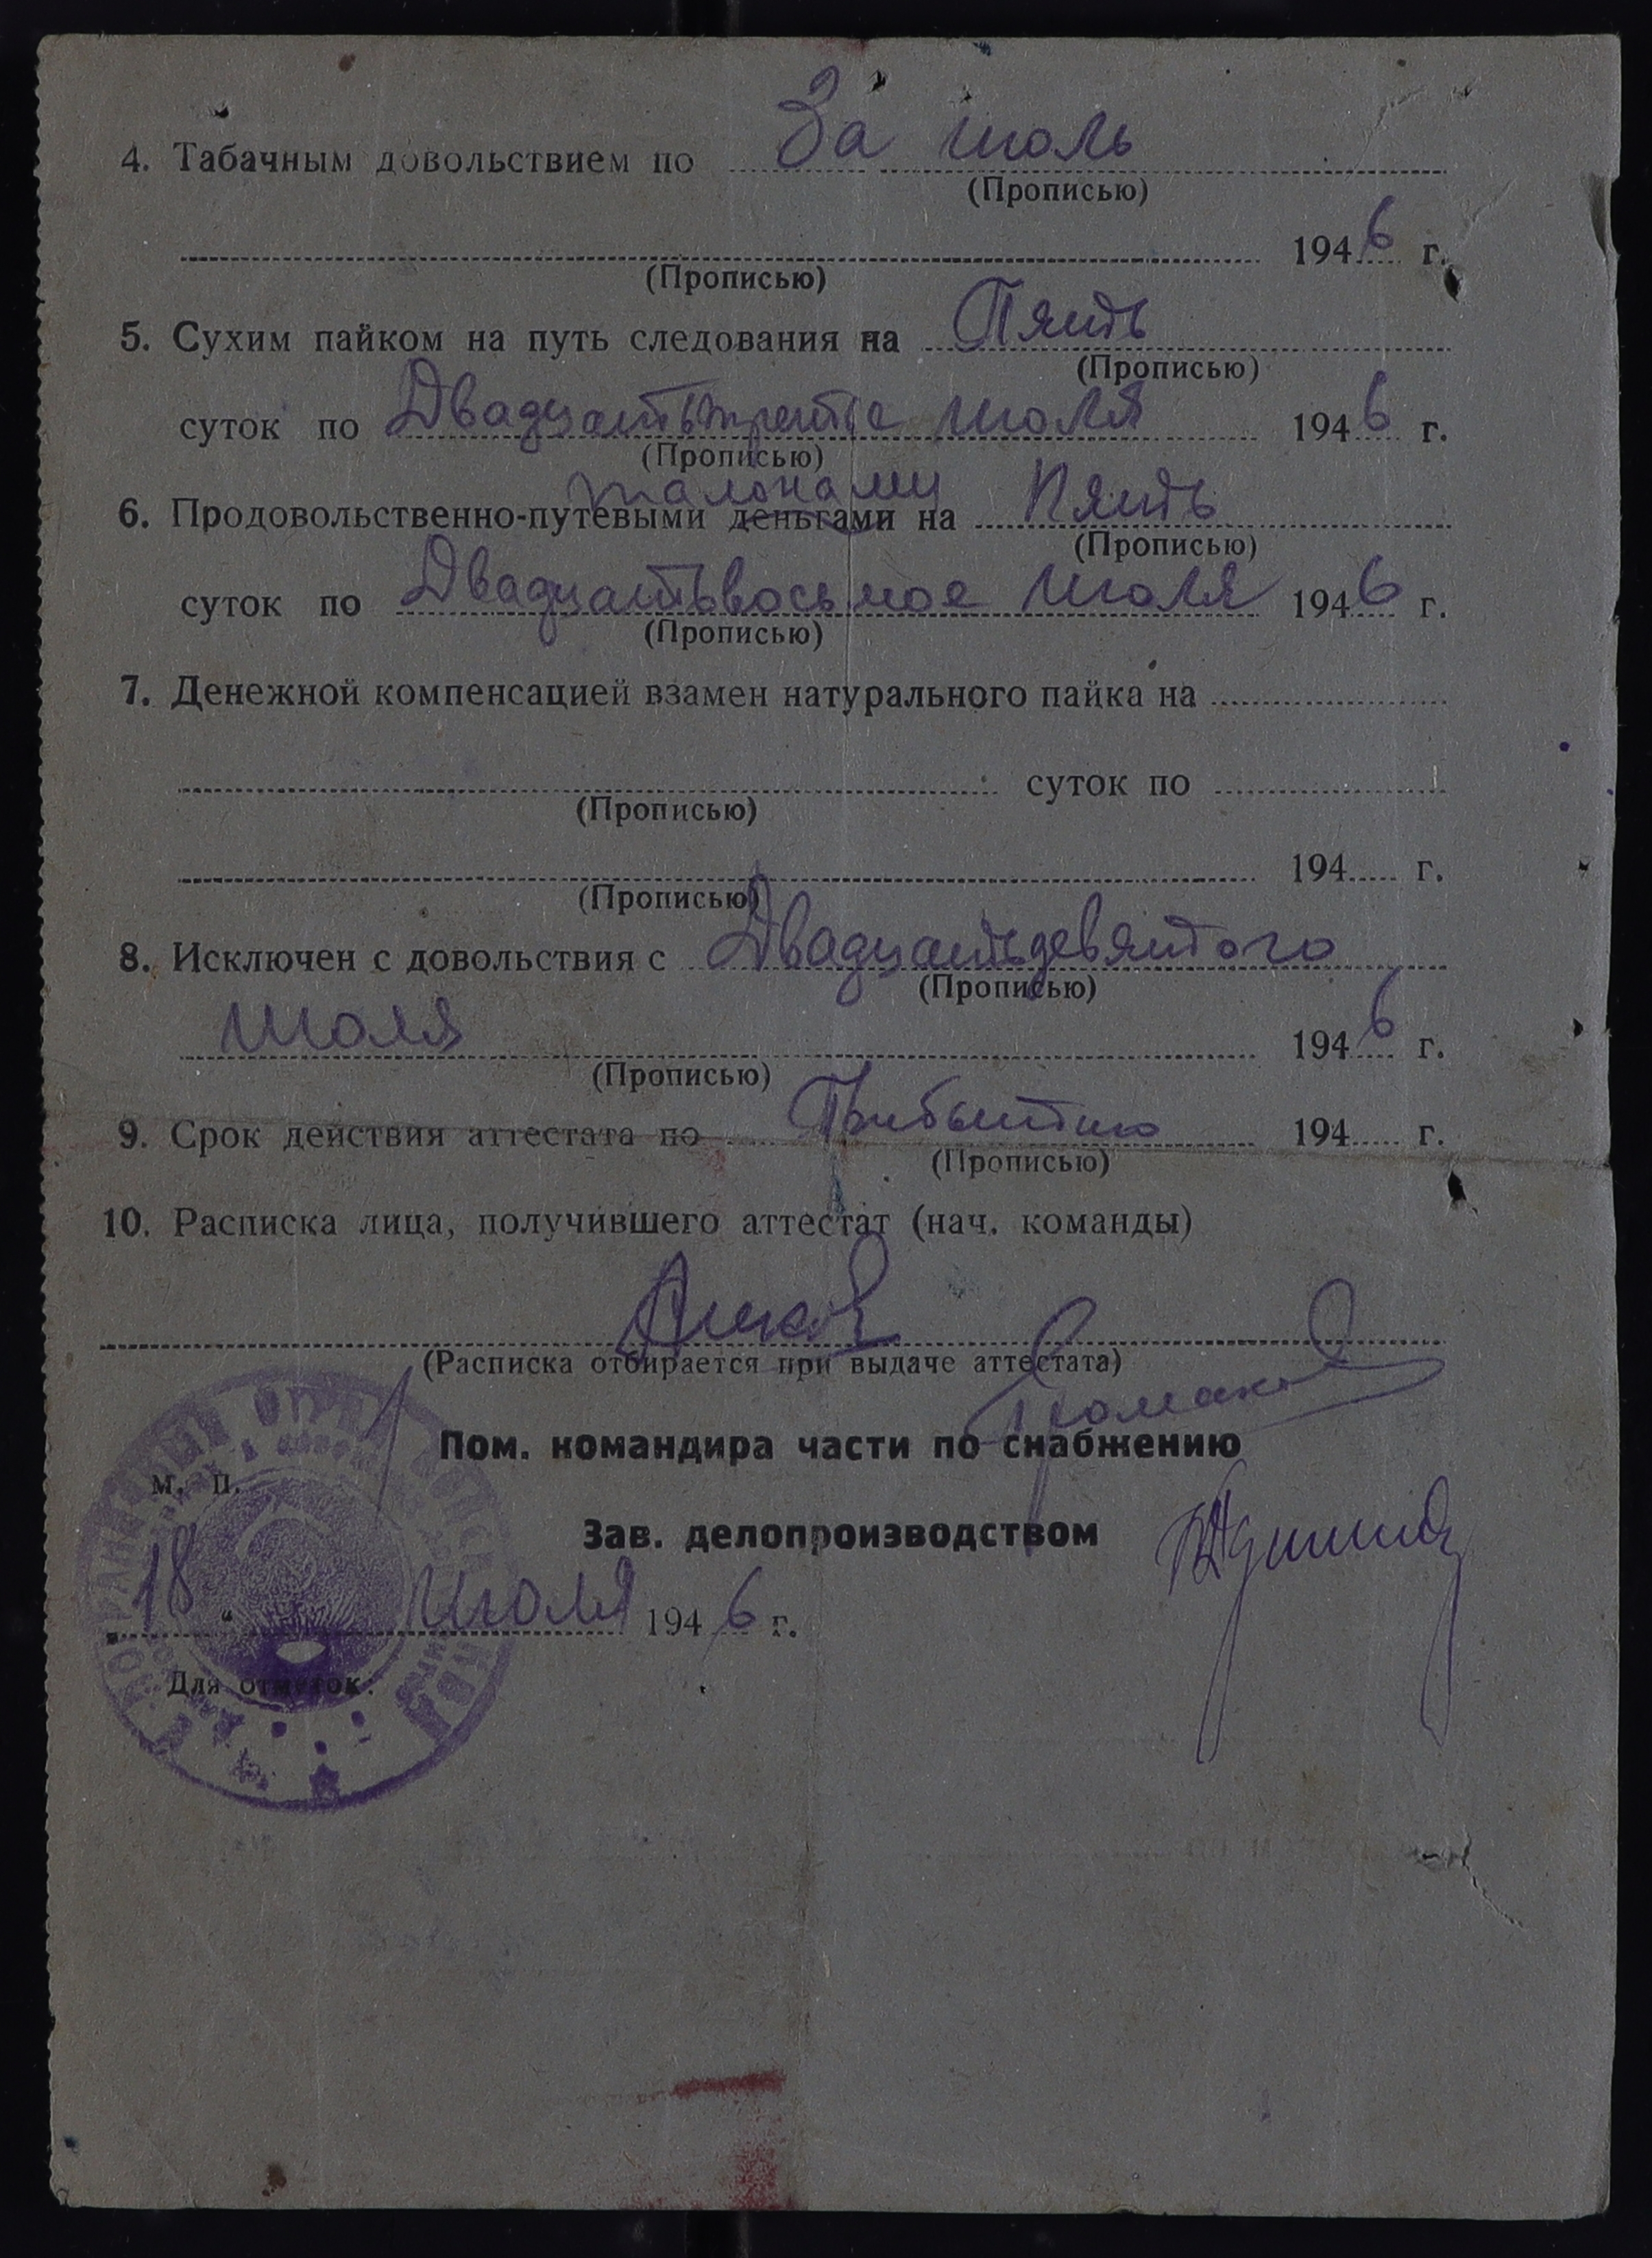 4. Табачным довольствием по За июль
(Прописью)
1946 г.
(Прописью)
5. Сухим пайком на путь следования на Пять
(Прописью)
суток по Двадцатьтретье июля 1946 г.
(Прописью)
талонами
6. Продовольственно-путевыми деньгами на Пять
(Прописью)
суток по Двадцатьвосьмое июля 1946 г.
(Прописью)
7. Денежной компенсацией взамен натурального пайка на
суток по
(Прописью)
194 г.
(Прописью)
8. Исключен с довольствия с Двадцатьдевятого
(Прописью)
июля 1946 г.
(Прописью)
9. Срок действия аттестата по Прибытию 194 г.
(Прописью)
10. Расписка лица, получившего аттестат (нач. команды)
(Расписка отбирается при выдаче аттестата)
Пом. командира части по снабжению
М. П.
Зав. делопроизводством
18 " июля 1946 г.
Для отметок: